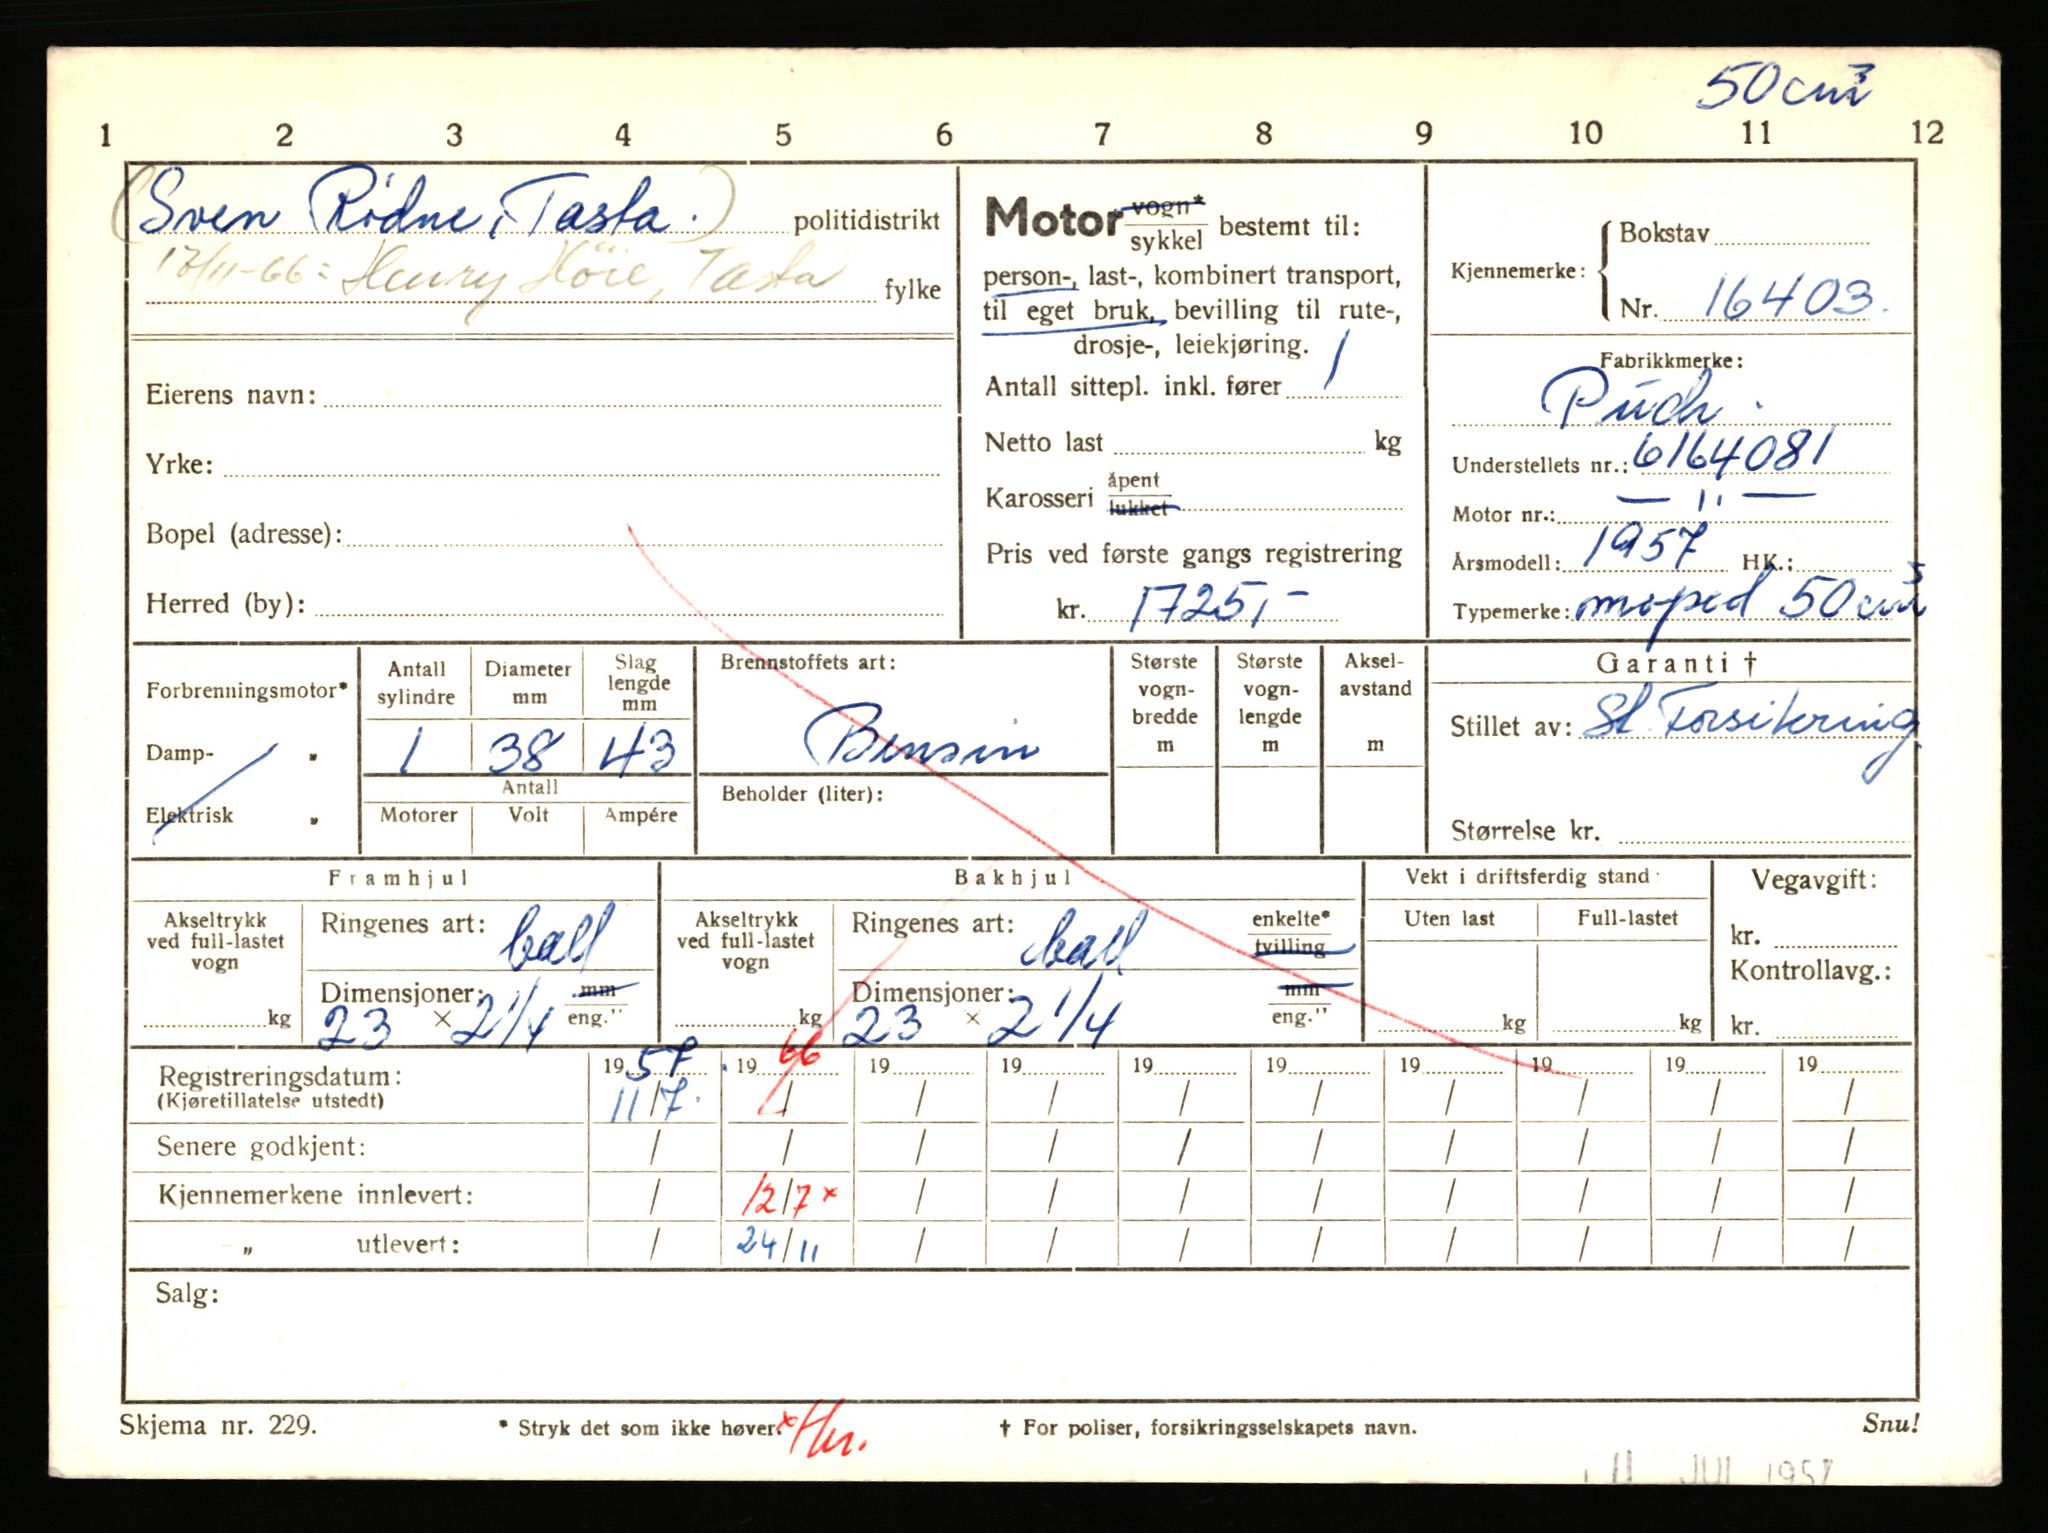 50 cm³
1 2 3 4 5 6 7 8 9 10 11 12
(Sven Rødne, Tasta.) politidistrikt
17/11-66: Henry Höie, Tasta fylke
Eierens navn:
Yrke:
Bopel (adresse):
Herred (by):
Motor vogn* / sykkel bestemt til:
person-, last-, kombinert transport,
til eget bruk, bevilling til rute-,
drosje-, leiekjøring.
Antall sittepl. inkl. fører 1
Netto last kg
Karosseri åpent / lukket
Pris ved første gangs registrering
kr. 1725,-
Kjennemerke: { Bokstav
Nr. 16403.
Fabrikkmerke:
Puch.
Understellets nr.: 6164081
Motor nr.: — " —
Årsmodell: 1957 HK.:
Typemerke: moped 50 cm³
Forbrenningsmotor*
Damp- "
Elektrisk "
Antall sylindre Diameter mm Slag lengde mm
1 38 43
Antall
Motorer Volt Ampére
Brennstoffets art:
Bensin
Beholder (liter):
Største vogn-bredde m
Største vogn-lengde m
Aksel-avstand m
Garanti †
Stillet av: St. Forsikring
Størrelse kr.
Framhjul
Akseltrykk
ved full-lastet
vogn
kg
Ringenes art: ball
Dimensjoner: mm
23 × 2 1/4 eng."
Bakhjul
Akseltrykk
ved full-lastet
vogn
kg
Ringenes art: ball enkelte* / tvilling
Dimensjoner: mm
23 × 2 1/4 eng."
Vekt i driftsferdig stand:
Uten last Full-lastet
kg kg
Vegavgift:
kr.
Kontrollavg.:
kr.
Registreringsdatum: 1957 1966 19 19 19 19 19 19 19 19
(Kjøretillatelse utstedt) 11/7. / / / / / / / / /
Senere godkjent: / / / / / / / / / /
Kjennemerkene innlevert: / 12/7 x / / / / / / / /
" utlevert: / 24/11 / / / / / / / /
Salg:
Skjema nr. 229. * Stryk det som ikke høver. x † For poliser, forsikringsselskapets navn. Snu!
11 JUL 1957